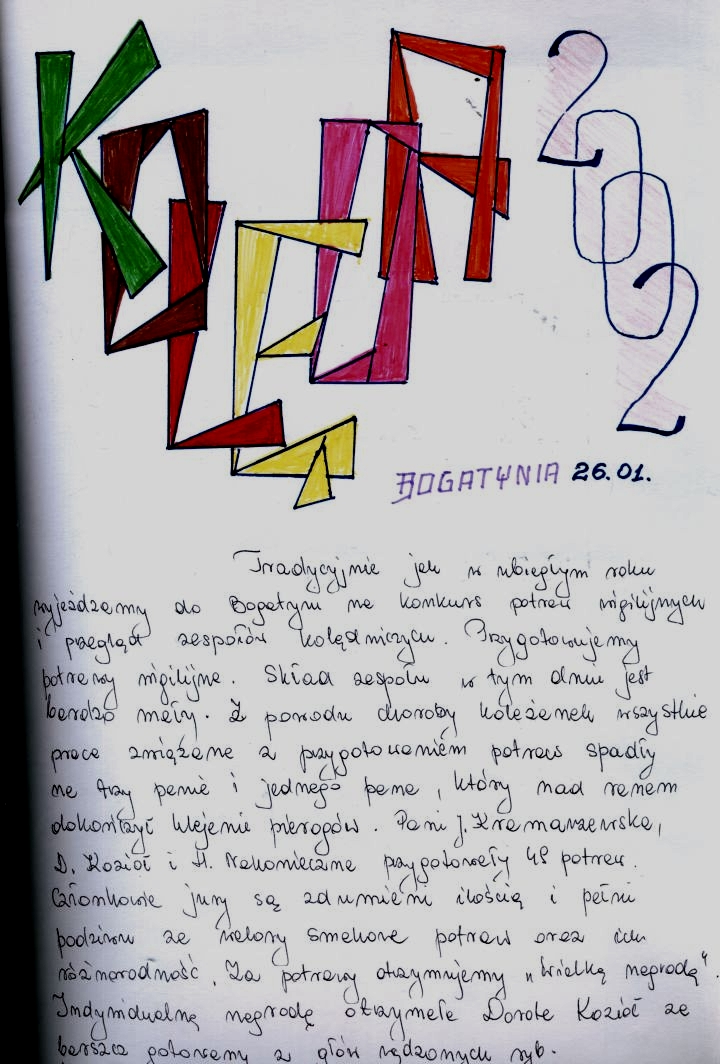 KOLĘDA 2002
BOGATYNIA 26.01.
Tradycyjnie jak w ubiegłym roku
wyjeżdzamy do Bogatyni na konkurs potraw wigilijnych
i przegląd zespołów kolędniczych. Przygotowujemy
potrawy wigilijne. Skład zespołu w tym dniu jest
bardzo mały. Z powodu choroby koleżanek wszystkie
prace związane z przygotowaniem potraw spadły
na trzy panie i jednego pana, który nad ranem
dokończył klejenie pierogów. Pani J. Kramarzewska,
D. Kozioł i H. Nakonieczna przygotowały 48 potraw.
Członkowie jury są zdumieni ilością i pełni
podziwu za walory smakowe potraw oraz ich
różnorodność. Za potrawy otrzymujemy "Wielką nagrodę".
Indywidualną nagrodę otrzymała Dorota Kozioł za
barszcz gotowany z głów wędzonych ryb.